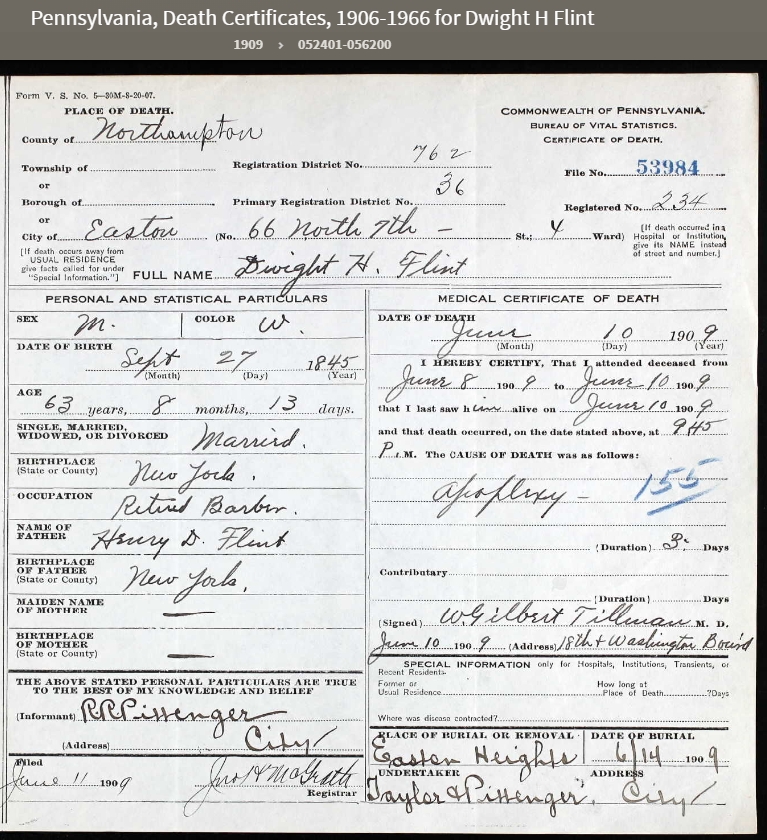 Pennsylvania, Death Certificates, 1906-1966 for Dwight H Flint
1909 › 052401-056200
Form V. S. No. 5—30M-8-20-07.
PLACE OF DEATH.
County of Northampton
Township of
or
Borough of
or
City of Easton
Registration District No. 762
Primary Registration District No. 36
(No. 66 North 7th — St.; 4 Ward)
COMMONWEALTH OF PENNSYLVANIA.
BUREAU OF VITAL STATISTICS.
CERTIFICATE OF DEATH.
File No. 53984
Registered No. 234
[If death occurred in a
Hospital or Institution,
give its NAME instead
of street and number.]
[If death occurs away from
USUAL RESIDENCE
give facts called for under
"Special Information."]
FULL NAME Dwight H. Flint
PERSONAL AND STATISTICAL PARTICULARS
SEX M.
COLOR W.
DATE OF BIRTH
Sept 27 1845
(Month) (Day) (Year)
AGE
63 years, 8 months, 13 days.
SINGLE, MARRIED,
WIDOWED, OR DIVORCED Married.
BIRTHPLACE
(State or County) New York.
OCCUPATION
Retired Barber.
NAME OF
FATHER Henry D. Flint
BIRTHPLACE
OF FATHER
(State or County) New York.
MAIDEN NAME
OF MOTHER —
BIRTHPLACE
OF MOTHER
(State or County) —
THE ABOVE STATED PERSONAL PARTICULARS ARE TRUE
TO THE BEST OF MY KNOWLEDGE AND BELIEF
(Informant) RRPittenger
(Address) City
Filed
June 11 1909 Jno H McGrath
Registrar
MEDICAL CERTIFICATE OF DEATH
DATE OF DEATH
June 10 1909
(Month) (Day) (Year)
I HEREBY CERTIFY, That I attended deceased from
June 8 1909 to June 10 1909
that I last saw him alive on June 10 1909
and that death occurred, on the date stated above, at 9 45
P.M. The CAUSE OF DEATH was as follows:
Apoplexy — 155
(Duration) 3 Days
Contributary
(Duration) Days
(Signed) W Gilbert Tillman M. D.
June 10 1909 (Address) 18th & Washington Bou'd
SPECIAL INFORMATION only for Hospitals, Institutions, Transients, or
Recent Residents.
Former or
Usual Residence
How long at
Place of Death ? Days
Where was disease contracted?
PLACE OF BURIAL OR REMOVAL
Easton Heights
DATE OF BURIAL
6/14 1909
UNDERTAKER
Taylor & Pittenger.
ADDRESS
City